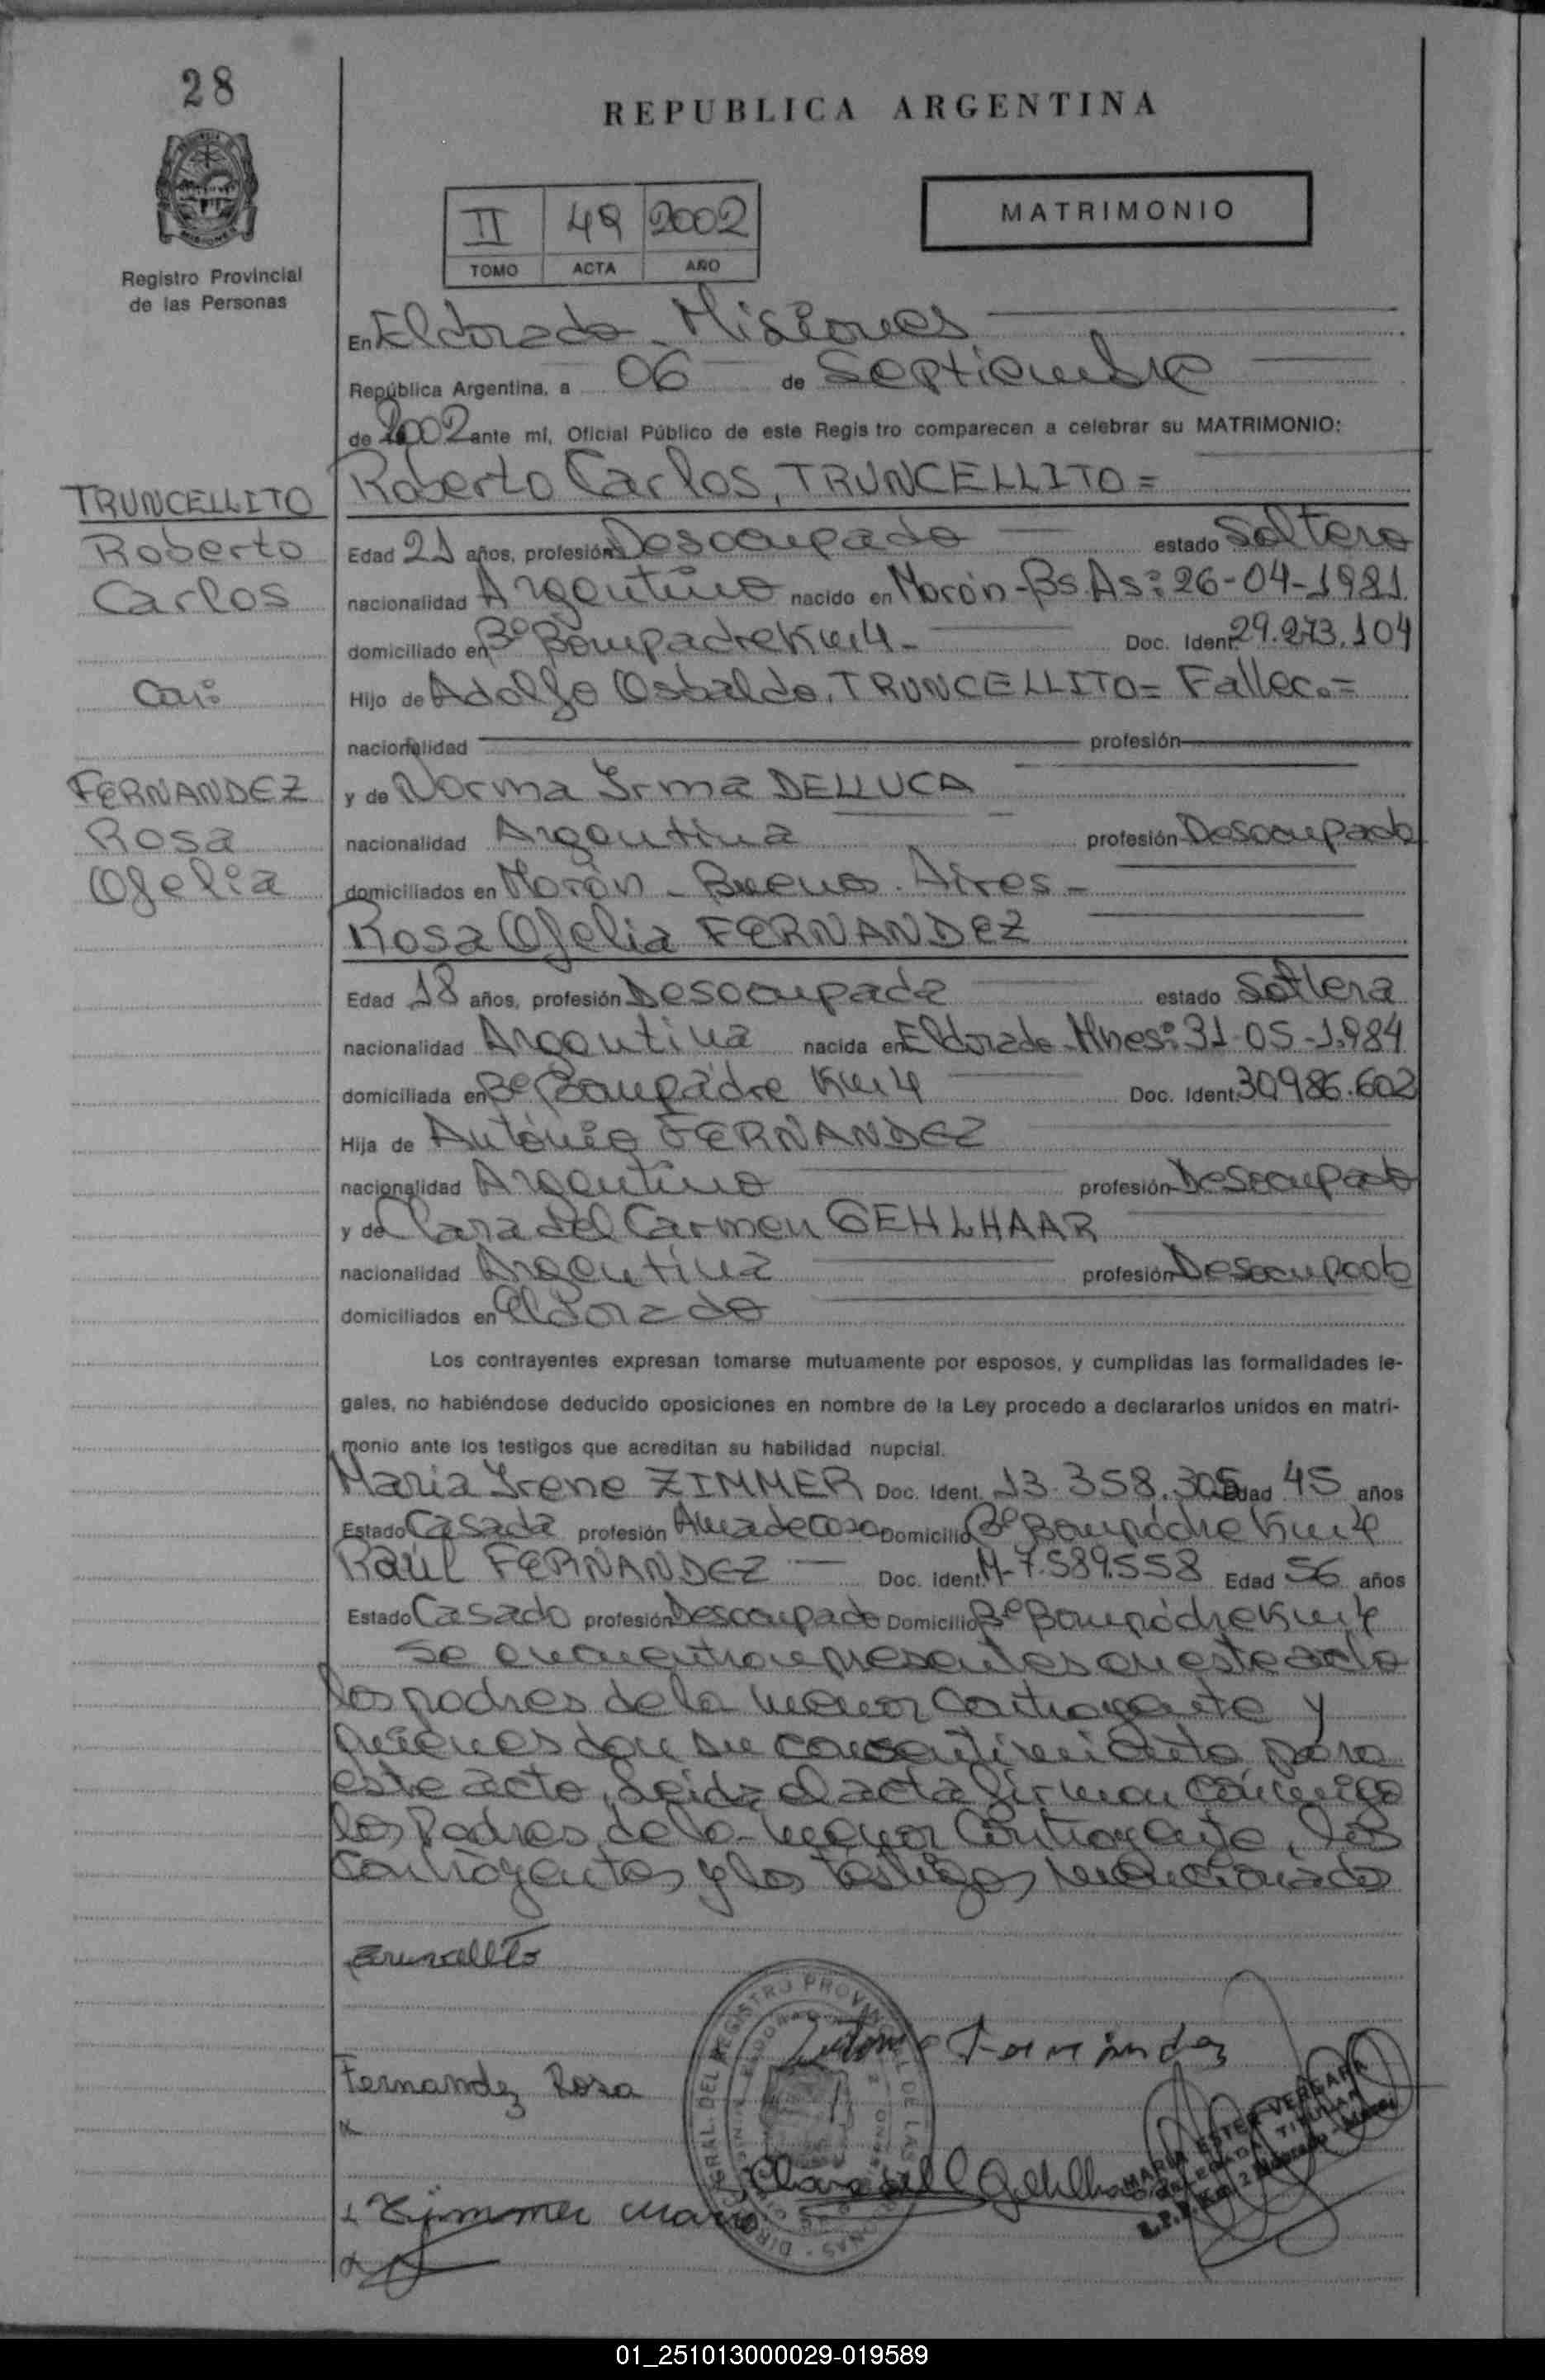 28
REPUBLICA ARGENTINA
II 49 2002
TOMO ACTA AÑO
MATRIMONIO
Registro Provincial
de las Personas
En Eldorado - Misiones
República Argentina, a 06 de Septiembre
de 2002 ante mí, Oficial Público de este Regis tro comparecen a celebrar su MATRIMONIO:
TRUNCELLITO
Roberto
Carlos
Con:
FERNANDEZ
Rosa
Ofelia
Roberto Carlos, TRUNCELLITO =
Edad 21 años, profesión Desocupado estado Soltero
nacionalidad Argentino nacido en Morón - Bs. As: 26-04-1981
domiciliado en Bº Bompadre Km 4 - Doc. Ident. 29.273.104
Hijo de Adolfo Osbaldo, TRUNCELLITO = Fallec. =
nacionalidad profesión
y de Norma Irma DELLUCA
nacionalidad Argentina profesión Desocupado
domiciliados en Morón - Buenos Aires -
Rosa Ofelia FERNANDEZ
Edad 18 años, profesión Desocupada estado Soltera
nacionalidad Argentina nacida en Eldorado - Mnes: 31-05-1984
domiciliada en Bº Bompadre Km 4 Doc. Ident. 30.986.602
Hija de Antonio FERNANDEZ
nacionalidad Argentino profesión Desocupado
y de Clara del Carmen GEHLHAAR
nacionalidad Argentina profesión Desocupado
domiciliados en Eldorado
Los contrayentes expresan tomarse mutuamente por esposos, y cumplidas las formalidades le-
gales, no habiéndose deducido oposiciones en nombre de la Ley procedo a declararlos unidos en matri-
monio ante los testigos que acreditan su habilidad nupcial.
Maria Irene ZIMMER Doc. Ident. 13.358.305 Edad 45 años
Estado Casada profesión Ama de casa Domicilio Bº Bompadre Km 4
Raúl FERNANDEZ Doc. Ident. M-7.589.558 Edad 56 años
Estado Casado profesión Desocupado Domicilio Bº Bompadre Km 4
Se encuentran presentes en este acto
los padres de la menor contrayente y
quienes dan su consentimiento para
este acto, Leida el acta firman conmigo
los Padres de la menor Contrayente, los
contrayentes y los testigos mencionados
Truncellito
Antonio Fernandez
Fernandez Rosa
Clara del C Gehlhaar
MARIA ESTER VERGARA
DELEGADA TITULAR
Zimmer Maria
01_251013000029-019589